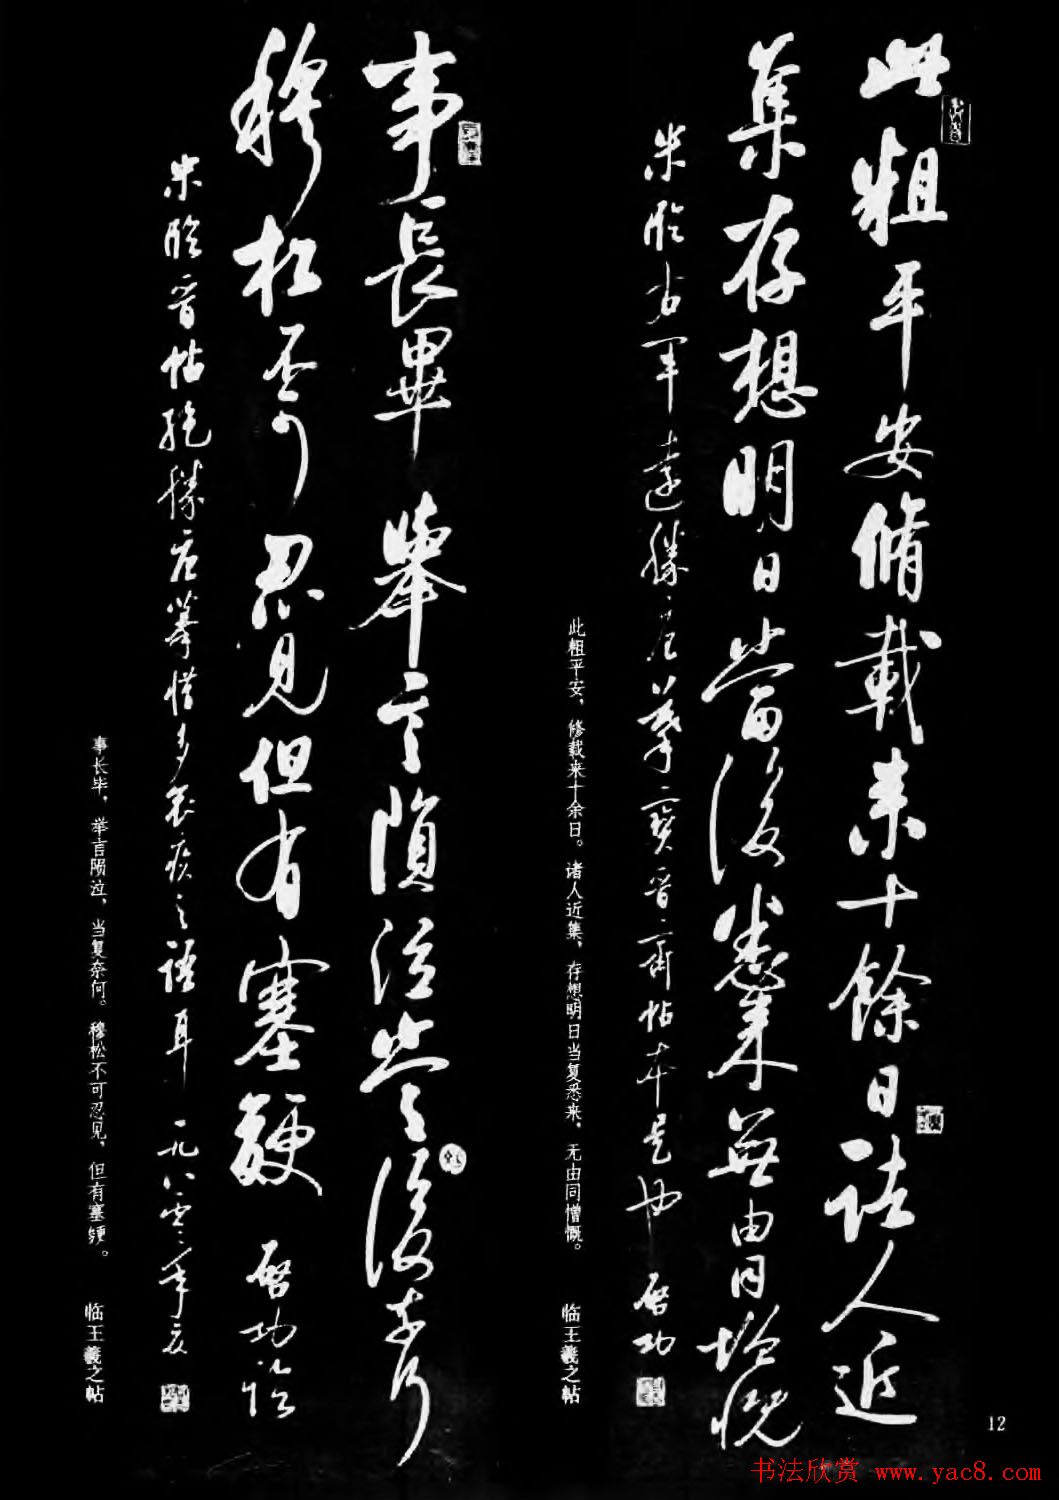 此粗平安脩載來十餘日諸人近
集存想明日當復悉來無由同增慨
米臨右軍遠勝唐摹寶晉齋帖本是也 啟功
此粗平安，修载来十余日。诸人近集，存想明日当复悉来，无由同憎慨。 临王羲之帖
事長畢舉言隕泣當復奈何
穆松不可忍見但有塞鯁 啟功臨
米臨晉帖絕勝唐摹惜多哀疾之語耳 一九八零年夏
事长毕，举言陨泣，当复奈何。穆松不可忍见，但有塞鲠。 临王羲之帖
12
书法欣赏 www.yac8.com